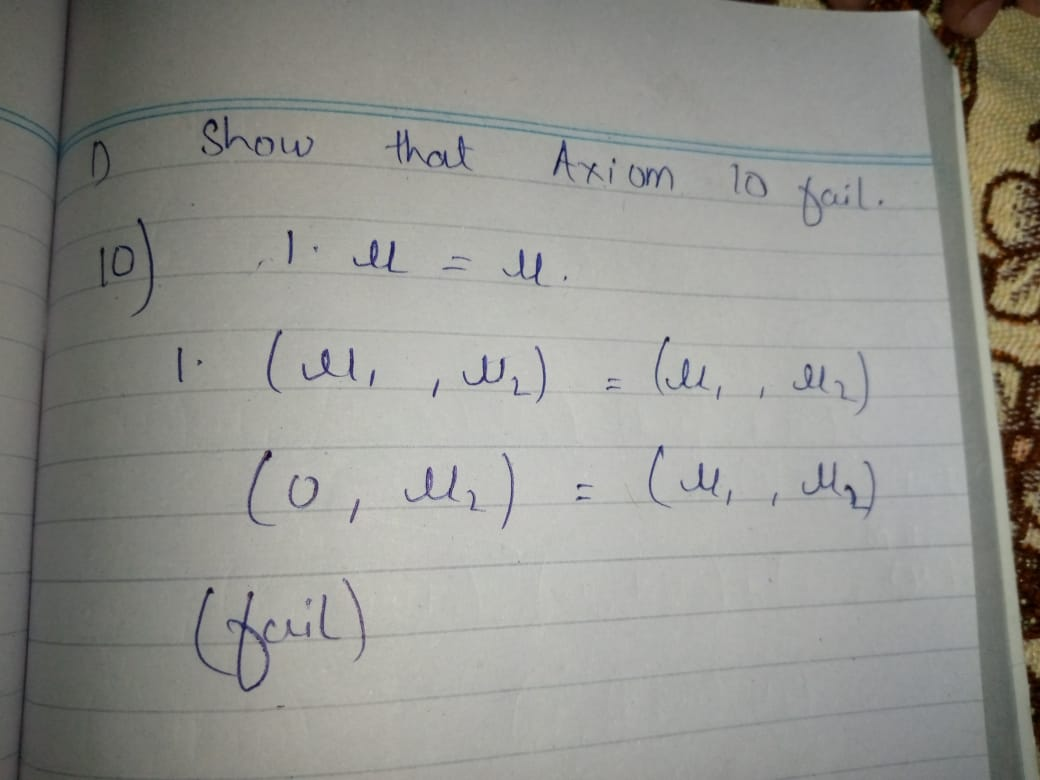 D Show that Axiom 10 fail.
10) 1. u = u.
1. (u₁, u₂) = (u₁, u₂)
(0, u₂) = (u₁, u₂)
(fail)